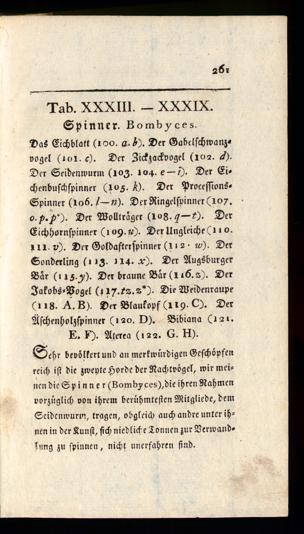 261
Tab. XXXIII. — XXXIX.
Spinner. Bombyces.
Das Eichblatt (100. a. b). Der Gabelschwanz-
vogel (101. c). Der Zickzackvogel (102. d).
Der Seidenwurm (103. 104. e—i). Der Ei-
chenbuschspinner (105. k). Der Processions-
Spinner (106. l—n). Der Ringelspinner (107.
o. p. p*). Der Wollträger (108. q—t). Der
Eichhornspinner (109. u). Der Ungleiche (110.
111. v). Der Goldafterspinner (112. w). Der
Sonderling (113. 114. x). Der Augsburger
Bär (115. y). Der braune Bär (116. z). Der
Jakobs-Vogel (117. tz. z*). Die Weidenraupe
(118. A. B). Der Blaukopf (119. C). Der
Äschenholzspinner (120. D). Bibiana (121.
E. F). Aterea (122. G. H).
Sehr bevölkert und an merkwürdigen Geschöpfen
reich ist die zweyte Horde der Nachtvögel, wir mei-
nen die Spinner (Bombyces), die ihren Nahmen
vorzüglich von ihrem berühmtesten Mitgliede, dem
Seidenwurm, tragen, obgleich auch andre unter ih-
nen in der Kunst, sich niedliche Tonnen zur Verwand-
lung zu spinnen, nicht unerfahren sind.